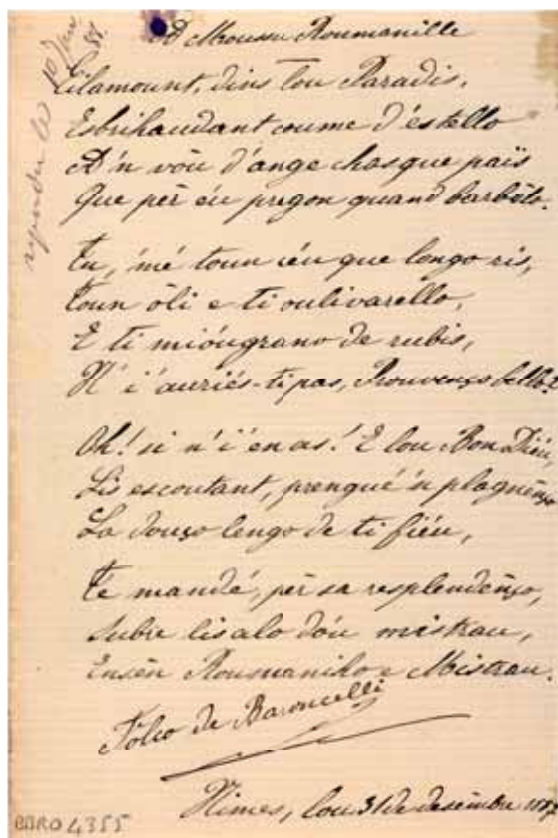 A Moussu Roumanille
Eilamount, dins lou Paradis,
Esbrihaudant coume d'estello
A'n vòu d'ange chasque païs
Que pèr éu pregon quand barbèlo.
Tu, 'mé toun céu que longo ris,
Toun òli e ti oulivarello,
E ti mióugrano de rubis,
N' i' auriés-ti pas, Prouvenço bello?
Oh! si n'i' en as! E lou Bon Diéu,
Lis escoutant, prengué 'n plagnènço
La douço lengo de ti fiéu,
Te mandé, pèr sa resplendènço,
Subre lis alo dóu mistrau,
Ensèn Roumaniho e Mistrau.
Fòlco de Baroncelli
Nimes, lou 31 de desèmbre
BARO 4355